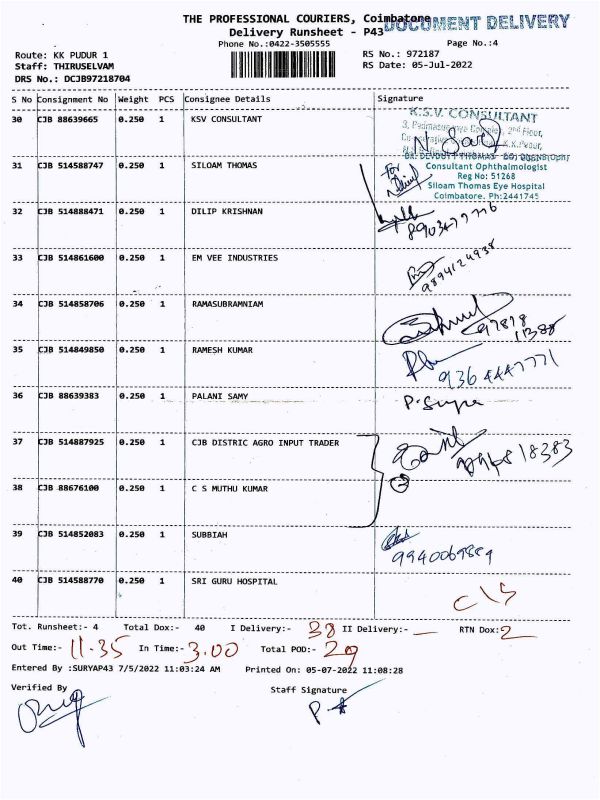 THE PROFESSIONAL COURIERS, Coimbatore
DOCUMENT DELIVERY
Delivery Runsheet - P43
Phone No.:0422-3505555 Page No.:4
Route: KK PUDUR 1 RS No.: 972187
Staff: THIRUSELVAM RS Date: 05-Jul-2022
DRS No.: DCJB97218704
S No Consignment No Weight PCS Consignee Details Signature
30 CJB 88639665 0.250 1 KSV CONSULTANT
K.S.V. CONSULTANT
2nd Floor,
31 CJB 514588747 0.250 1 SILOAM THOMAS
For
Consultant Ophthalmologist
Reg No: 51268
Siloam Thomas Eye Hospital
Coimbatore. Ph:2441745
32 CJB 514888471 0.250 1 DILIP KRISHNAN
8903477776
33 CJB 514861600 0.250 1 EM VEE INDUSTRIES
9894124938
34 CJB 514858706 0.250 1 RAMASUBRAMNIAM
97878
11388
35 CJB 514849850 0.250 1 RAMESH KUMAR
9364447771
36 CJB 88639383 0.250 1 PALANI SAMY
37 CJB 514887925 0.250 1 CJB DISTRIC AGRO INPUT TRADER
38 CJB 88676100 0.250 1 C S MUTHU KUMAR
39 CJB 514852083 0.250 1 SUBBIAH
40 CJB 514588770 0.250 1 SRI GURU HOSPITAL
C/S
Tot. Runsheet:- 4 Total Dox:- 40 I Delivery:- 38 II Delivery:- — RTN Dox:- 2
Out Time:- 11.35 In Time:- 3.00 Total POD:- 29
Entered By :SURYAP43 7/5/2022 11:03:24 AM Printed On: 05-07-2022 11:08:28
Verified By Staff Signature